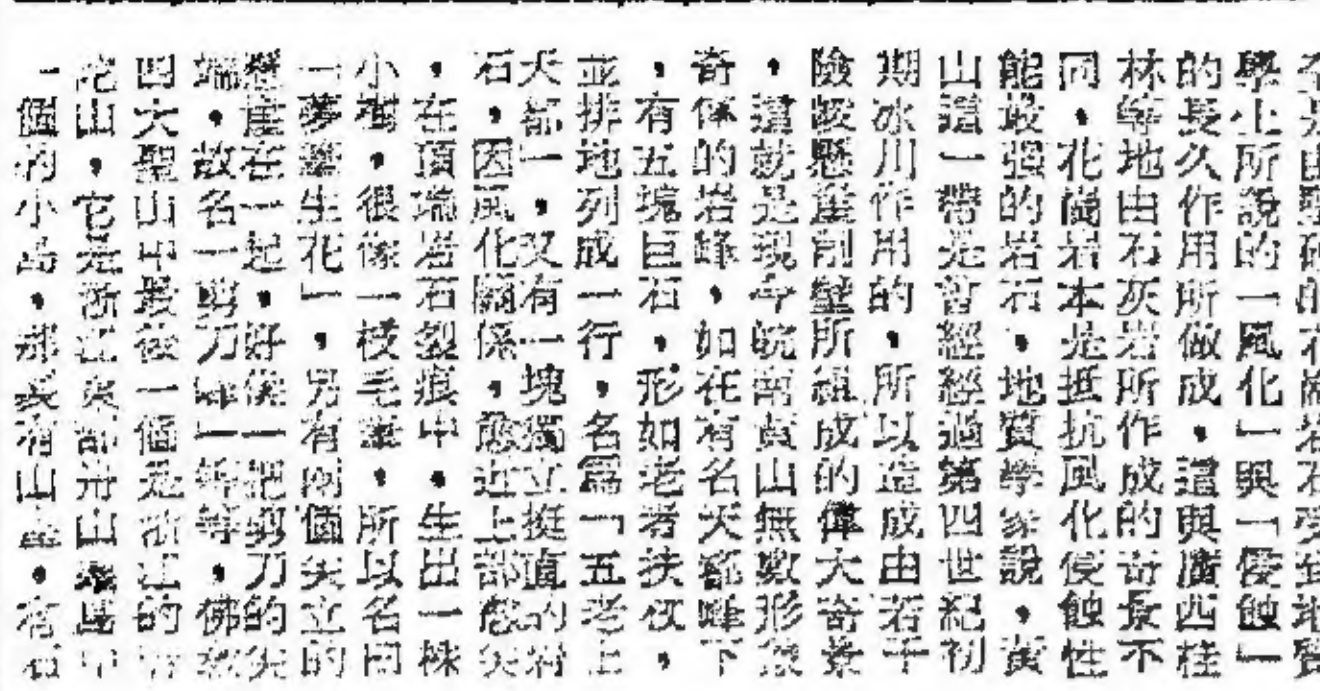 學上所說的「風化」與「侵蝕」
的長久作用所做成。這與廣西桂
林等地由石灰岩所作成的奇景不
同。花崗岩本是抵抗風化侵蝕性
能最强的岩石。地質學家說，黃
山這一帶是曾經經過第四世紀初
期冰川作用的，所以造成由若干
險峻懸崖削壁所組成的偉大奇景
，這就是現今皖南黃山無數形狀
奇偉的岩峰。如在有名天都峰下
，有五塊巨石，形如老者扶杖，
並排地列成一行，名爲「五老上
天都」，又有一塊獨立挺直的岩
石，因風化關係，愈近上部愈尖
，在頂端岩石裂痕中，生出一株
小樹，很像一枝毛筆，所以名曰
「夢筆生花」，另有兩個尖立的
懸崖在一起，好像一把剪刀的尖
端，故名「剪刀峰」等等，佛教
四大聖山中最後一個是浙江的普
陀山，它是浙江東部舟山羣島中
一個的小島，那裏有山，有石